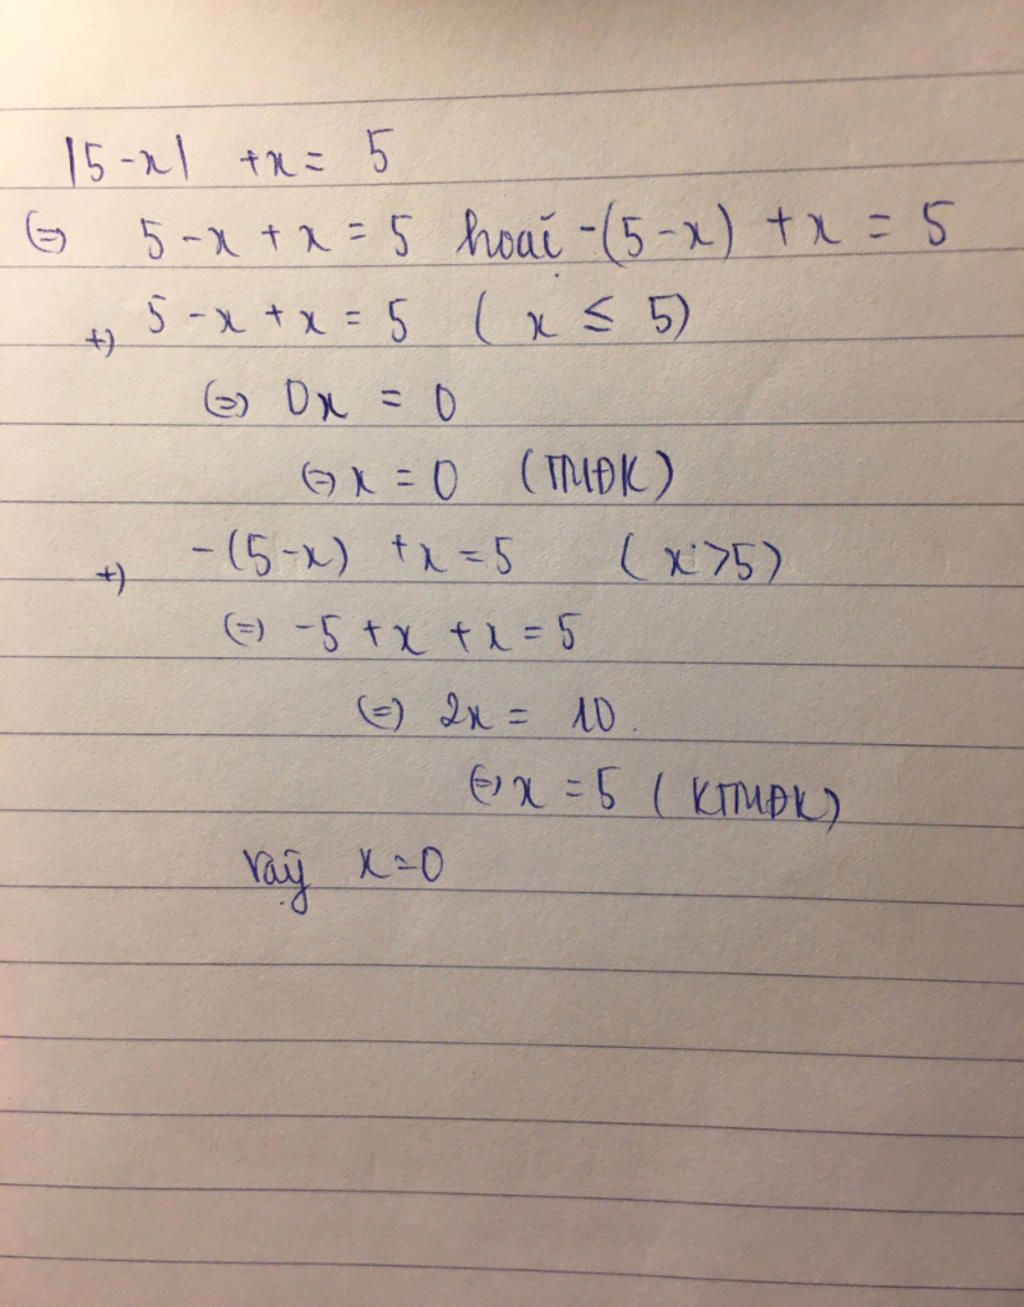 |5-x| +x= 5
(=) 5-x+x=5 hoặc -(5-x) +x = 5
+) 5-x+x=5 ( x ≤ 5)
(=) 0x = 0
(=) x = 0 (TMĐK)
+) -(5-x) +x=5 ( x>5)
(=) -5+x +x=5
(=) 2x = 10.
(=) x = 5 ( KTMĐK)
vậy x=0